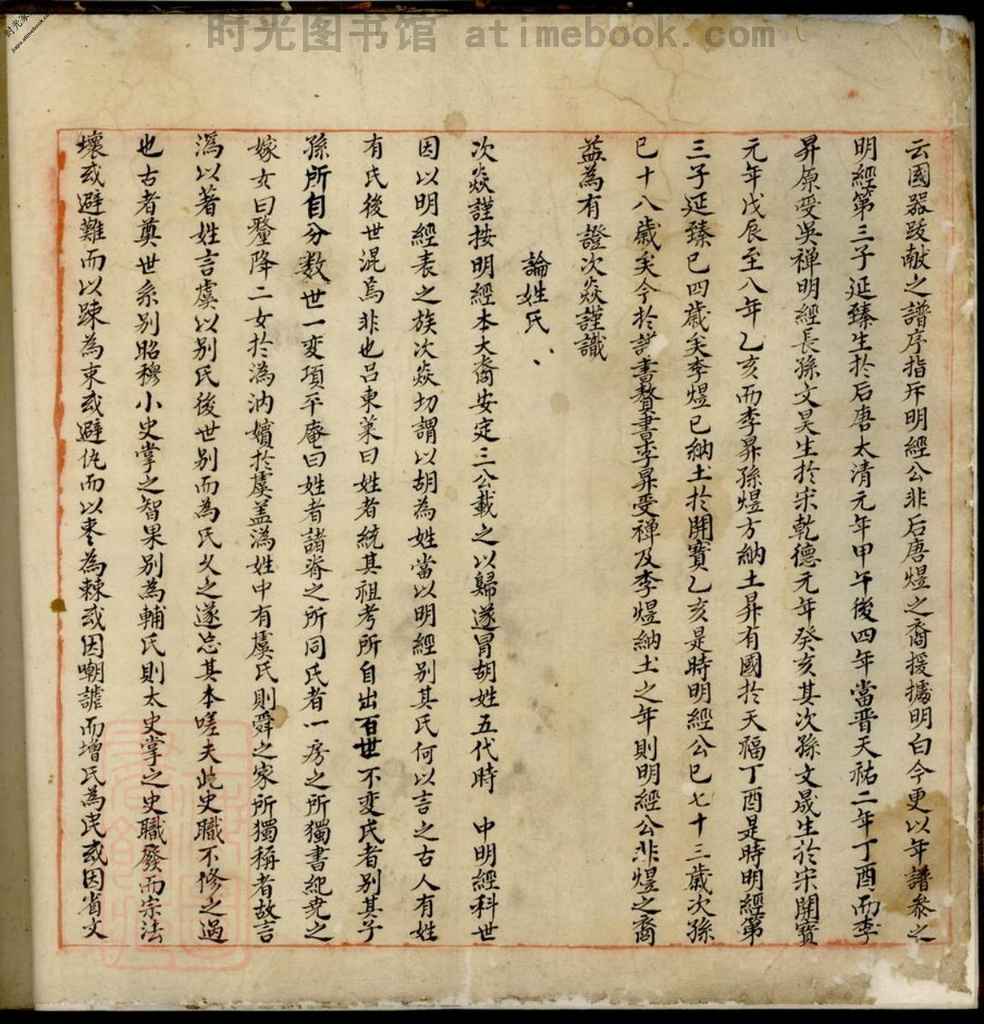 时光图书馆 atimebook.com
云國器跋献之譜序指斥明經公非后唐煜之裔援據明白今更以年譜叅之
明經第三子延臻生於后唐太清元年甲午後四年當晋天祐二年丁酉而李
昇原受吳禅明經長孫文昊生於宋乾德元年癸亥其次孫文晟生於宋開寶
元年戊辰至八年乙亥而李昇孫煜方納土昇有國於天福丁酉是時明經第
三子延臻已四歲矣李煜已納土於開寶乙亥是時明經公已七十三歲次孫
已十八歲矣今於誥書賛書李昇受禅及李煜納土之年則明經公非煜之裔
益為有證次焱謹識
論姓氏
次焱謹按明經本大裔安定三公載之以歸遂冒胡姓五代時 中明經科世
因以明經表之族次焱切謂以胡為姓當以明經别其氏何以言之古人有姓
有氏後世混為非也吕東莱曰姓者統其祖考所自出百世不変氏者别其子
孫所自分数世一変項平庵曰姓者諸脊之所同氏者一房之所獨書紀尭之
嫁女曰釐降二女於溈汭嬪於虞盖溈姓中有虞氏則舜之家所獨稱者故言
溈以著姓言虞以别氏後世别而為氏久之遂忘其本嗟夫此史職不修之過
也古者奠世系别昭穆小史掌之智果别為輔氏則太史掌之史職廢而宗法
壞或避難而以踈為束或避仇而以枣為棘或因嘲謔而增氏為民或因省文